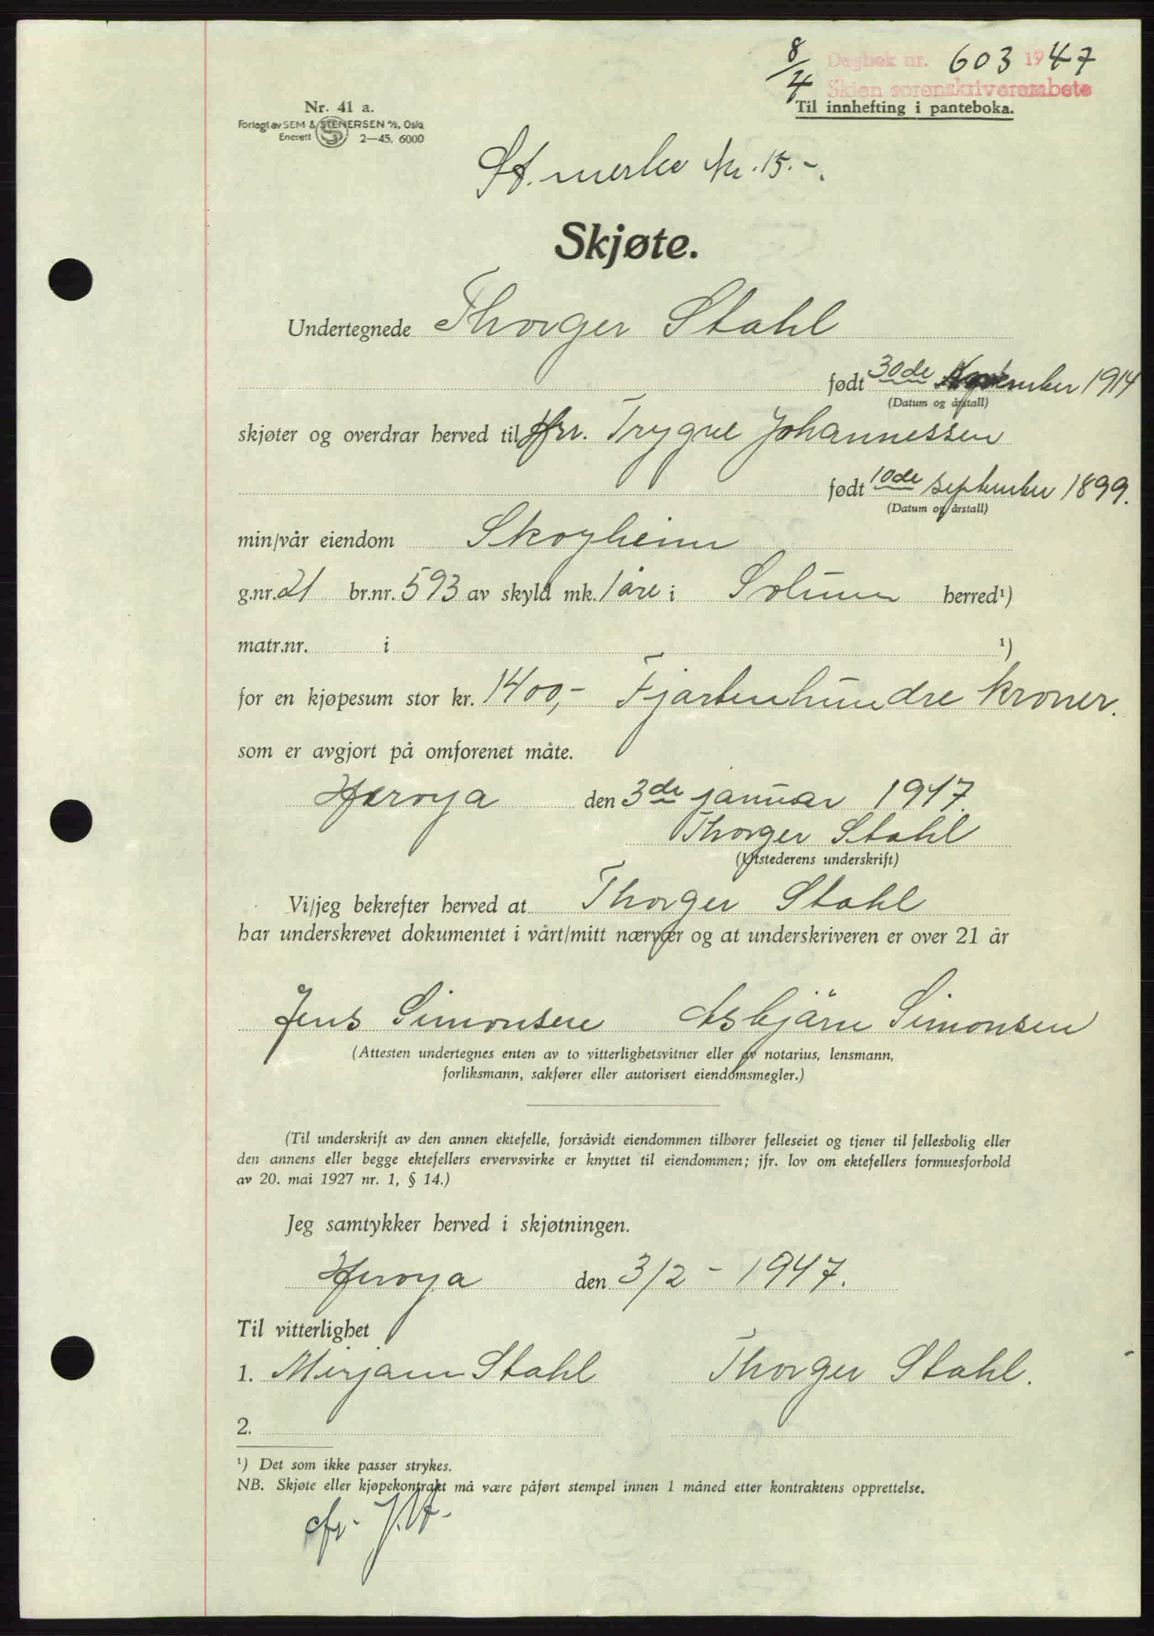 8/4 Dagbok nr. 603 1947
Skien sorenskriverembete
Til innhefting i panteboka.
Nr. 41 a.
Forlagt av SEM & STENERSEN A/S, Oslo
Enerett S 2—45. 6000
St. merke kr. 15.-.
Skjøte.
Undertegnede Thorger Stahl
født 30de November 1914
(Datum og årstall)
skjøter og overdrar herved til Hr. Trygve Johannessen
født 10de september 1899.
(Datum og årstall)
min/vår eiendom Skogheim
g.nr. 21 br.nr. 593 av skyld mk. 1 øre i Solum herred¹)
matr.nr. i ¹)
for en kjøpesum stor kr. 1400,- Fjortenhundre kroner.
som er avgjort på omforenet måte.
Herøya den 3de januar 1947.
Thorger Stahl
(Utstederens underskrift)
Vi/jeg bekrefter herved at Thorger Stahl
har underskrevet dokumentet i vårt/mitt nærvær og at underskriveren er over 21 år
Jens Simonsen Asbjørn Simonsen
(Attesten undertegnes enten av to vitterlighetsvitner eller av notarius, lensmann,
forliksmann, sakfører eller autorisert eiendomsmegler.)
(Til underskrift av den annen ektefelle, forsåvidt eiendommen tilhører felleseiet og tjener til fellesbolig eller
den annens eller begge ektefellers ervervsvirke er knyttet til eiendommen; jfr. lov om ektefellers formuesforhold
av 20. mai 1927 nr. 1, § 14.)
Jeg samtykker herved i skjøtningen.
Herøya den 3/2 - 1947.
Til vitterlighet
1. Mirjam Stahl Thorger Stahl.
2.
¹) Det som ikke passer strykes.
NB. Skjøte eller kjøpekontrakt må være påført stempel innen 1 måned etter kontraktens opprettelse.